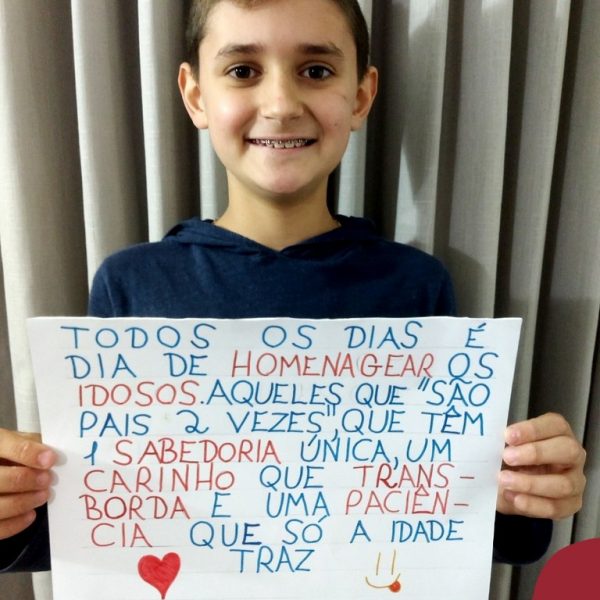 TODOS OS DIAS É
DIA DE HOMENAGEAR OS
IDOSOS. AQUELES QUE "SÃO
PAIS 2 VEZES", QUE TÊM
1 SABEDORIA ÚNICA, UM
CARINHO QUE TRANS-
BORDA E UMA PACIÊN-
CIA QUE SÓ A IDADE
TRAZ